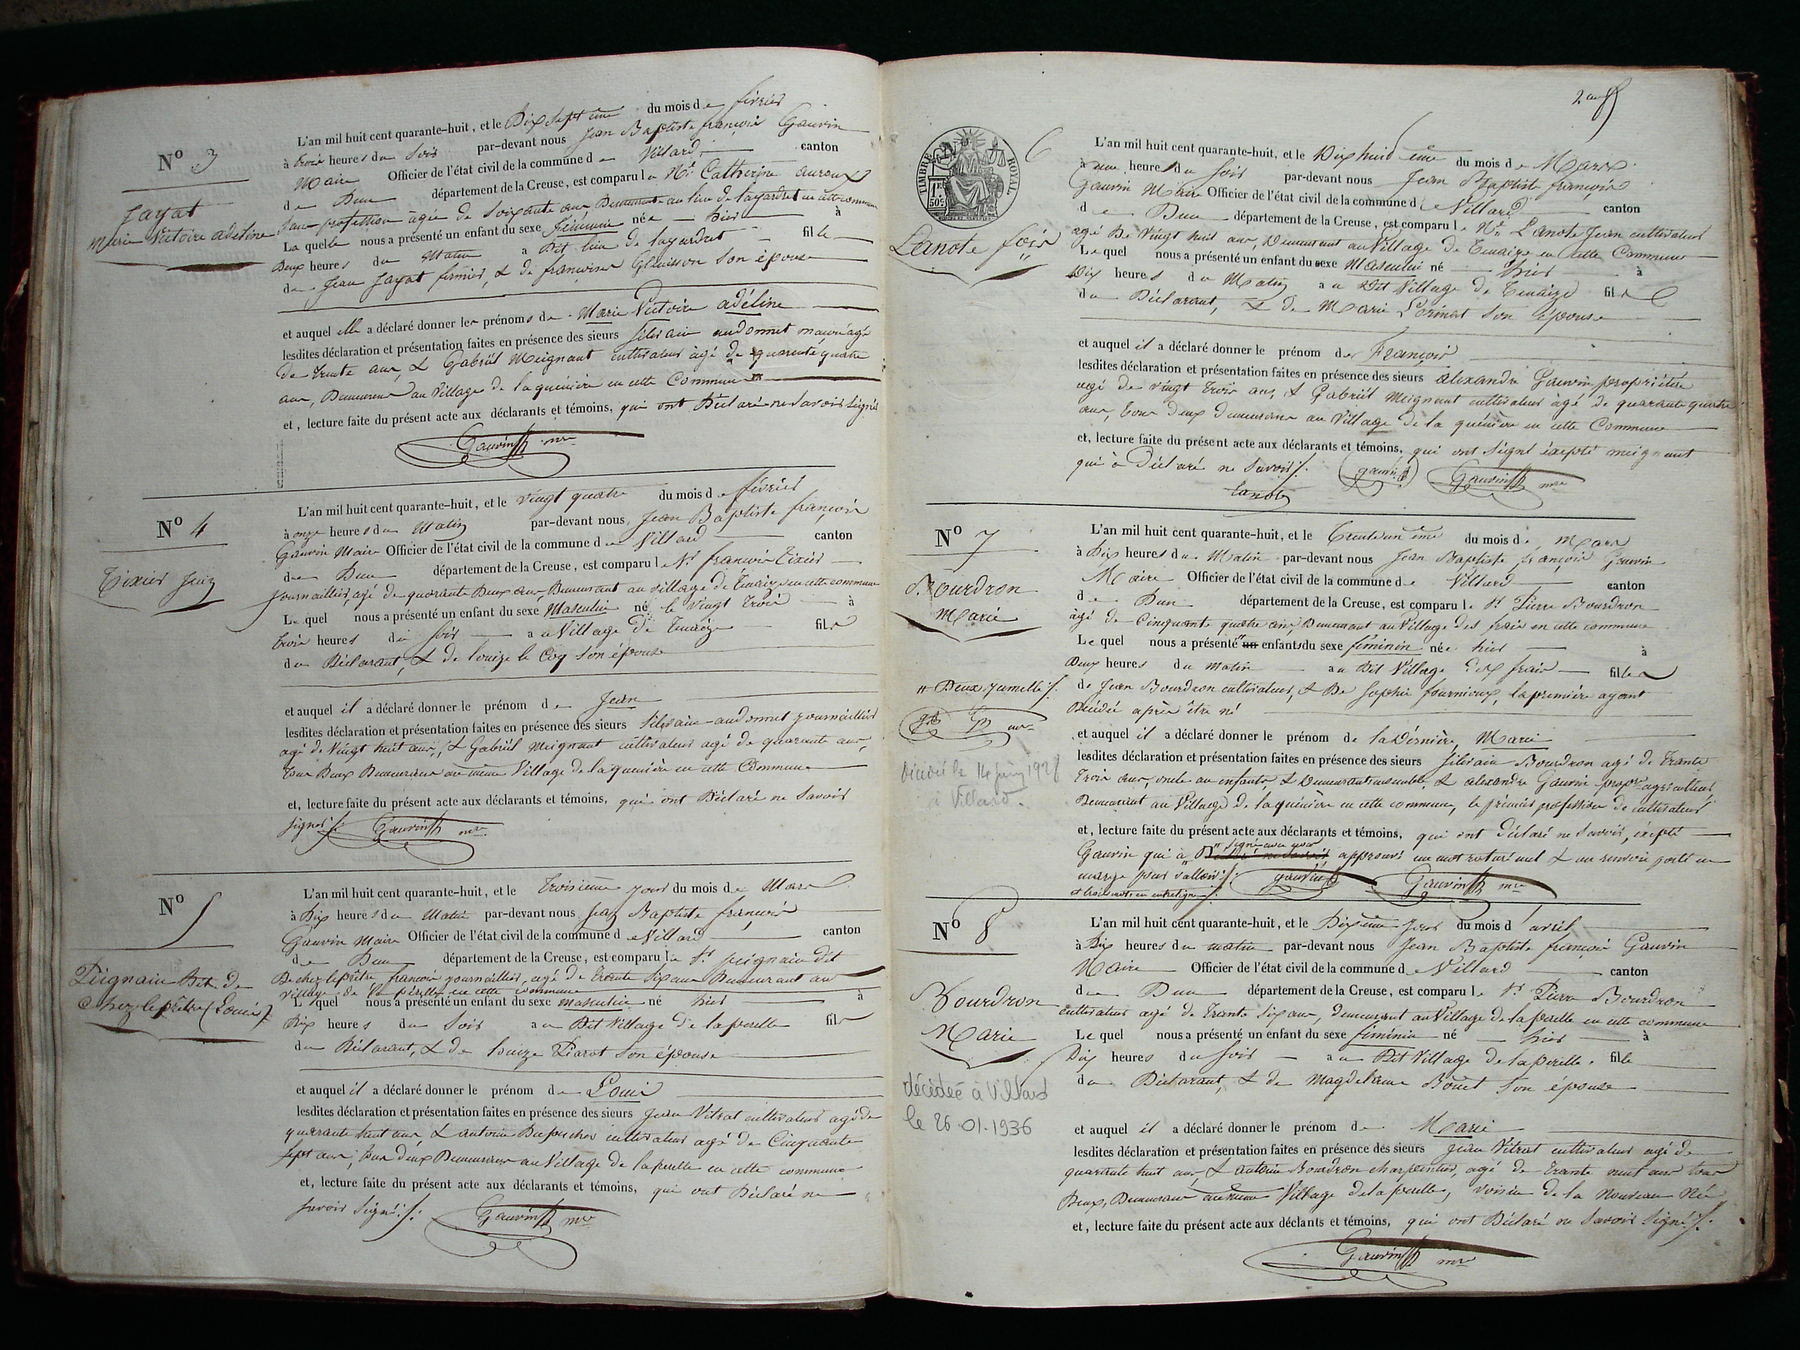 N° 3
Jayat
Marie Victoire adéline
L'an mil huit cent quarante-huit, et le Dix sept ème du mois de février
à trois heures du Soir par-devant nous Jean Baptiste françois Gauvin
Maire Officier de l'état civil de la commune de Villard canton
de Dun département de la Creuse, est comparu la Né Catherine auroux
Sans profession agée de Soixante ans Demeurante au lieu de layardret en cette commune
La quelle nous a présenté un enfant du sexe féminin née hier à
Deux heures du Matin a Dit lieu de layardret fille
de Jean Jayat fermier, & de françoise Gluisson Son épouse
et auquel elle a déclaré donner les prénoms de Marie Victoire adéline
lesdites déclaration et présentation faites en présence des sieurs Silvain audonnet agé
de trente ans, & Gabriël Meignant cultivateur agé de quarante quatre
ans, Demeurant au Village de la quenière en cette Commune
et, lecture faite du présent acte aux déclarants et témoins, qui ont Déclaré ne Savoir Signer
Gauvin mre
N° 4
Tixier Jean
L'an mil huit cent quarante-huit, et le vingt quatre du mois de février
à onze heures du Matin par-devant nous Jean Baptiste françois
Gauvin Maire Officier de l'état civil de la commune de Villard canton
de Dun département de la Creuse, est comparu le Né françois Tixier
journaillier, agé de quarante Deux ans Demeurant au village de Tenaize en cette commune
Le quel nous a présenté un enfant du sexe Masculin né le vingt Trois à
Trois heures du soir au Village de Tenaize fils
du Déclarant, & de louize le Coq Son épouse
et auquel il a déclaré donner le prénom de Jean
lesdites déclaration et présentation faites en présence des sieurs Silvain audonnet journaillier
agé de Vingt huit ans, & Gabriël Meignant cultivateur agé de quarante ans,
tous Deux Demeurans au même Village de la quenière en cette Commune
et, lecture faite du présent acte aux déclarants et témoins, qui ont Déclaré ne Savoir
Signer ./. Gauvin mre
N° 5
Peignain Dit de
Chez leprêtre (Louis)
L'an mil huit cent quarante-huit, et le Troisième jour du mois de Mars
à Dix heures du Matin par-devant nous Jean Baptiste françois
Gauvin Maire Officier de l'état civil de la commune de Villard canton
de Dun département de la Creuse, est comparu le Sr peignain dit
De chez leprêtre françois journaillier, agé de trente Six ans Demeurant au
village de la perelle en cette commune
Le quel nous a présenté un enfant du sexe masculin né hier à
Dix heures du Soir au Dit Village de la perelle fils
du Déclarant, & de louize Piarot Son épouse
et auquel il a déclaré donner le prénom de Louis
lesdites déclaration et présentation faites en présence des sieurs Jean Vitrat cultivateur agé de
quarante huit ans & antoine Dufoucher cultivateur agé de Cinquante
sept ans, tous deux Demeurans au Village de la perelle en cette commune
et, lecture faite du présent acte aux déclarants et témoins, qui ont Déclaré ne
savoir Signer ./. Gauvin mre
2eme
TIMBRE ROYAL
1 f. 50 c.
6
Lanote fois
L'an mil huit cent quarante-huit, et le Dix huit ème du mois de Mars
à une heure du Soir par-devant nous Jean Baptiste françois
Gauvin Maire Officier de l'état civil de la commune de Villard canton
de Dun département de la Creuse, est comparu le Né Lanote Jean cultivateur
agé de Vingt huit ans, Demeurant au Village de Tenaize en cette Commune
Le quel nous a présenté un enfant du sexe Masculin né hier à
Dix heures du Matin au Dit Village de Tenaize fils
du Déclarant, & de Marie Son épouse
et auquel il a déclaré donner le prénom de François
lesdites déclaration et présentation faites en présence des sieurs alexandre Gauvin propriétaire
agé de vingt trois ans, & Gabriël Meignant cultivateur agé de quarante quatre
ans, tous deux demeurans au Village de la quenière en cette Commune
et, lecture faite du présent acte aux déclarants et témoins, qui ont Signé éxcepté meignant
qui a déclaré ne Savoir ./. Gauvin Gauvin mre
Lanote
N° 7
Bourdron
Marie
"Deux jumelle ./.
mre
Décédée le 14 1928
à Villard.
L'an mil huit cent quarante-huit, et le Trente un ème du mois de Mars
à Dix heures du Matin par-devant nous Jean Baptiste françois Gauvin
Maire Officier de l'état civil de la commune de Villard canton
de Dun département de la Creuse, est comparu le Sr Pierre Bourdron
agé de Cinquante quatre ans, Demeurant au Village des frais en cette commune
Le quel nous a présenté un enfants du sexe féminin née hier à
Deux heures du matin au Dit Village des frais filles
de Jean Bourdron cultivateur, & De Sophie fournioux, la première ayant
Décédée après être né
et auquel il a déclaré donner le prénom de la Dernière, Marie
lesdites déclaration et présentation faites en présence des sieurs Silvain Bourdron agé de Trente
Trois ans, oncle au enfants, & Demeurant ensemble, & alexandre Gauvin propre agriculteur
Demeurant au Village de la quenière en cette commune, le premier profession de cultivateur
et, lecture faite du présent acte aux déclarants et témoins, qui ont déclaré ne Savoir, éxcepté
Gauvin qui a Signé avec nous approuvé un mot raturé nul & un renvoie porté en
marge pour valloir ./. Gauvin Gauvin mre
N° 8
Bourdron
Marie
décédée à Villard
le 26.01.1936
L'an mil huit cent quarante-huit, et le Dixième jour du mois d'avril
à Dix heures du matin par-devant nous Jean Baptiste françois Gauvin
Maire Officier de l'état civil de la commune de Villard canton
de Dun département de la Creuse, est comparu le Sr Pierre Bourdron
cultivateur agé de trente Six ans, demeurant au Village de la perelle en cette commune
Le quel nous a présenté un enfant du sexe féminin né hier à
Dix heures du Soir au Dit Village de la perelle fille
du Déclarant, & de Magdelaine Bouet Son épouse
et auquel il a déclaré donner le prénom de Marie
lesdites déclaration et présentation faites en présence des sieurs Jean Vitrat cultivateur agé de
quarante huit ans, & antoine Bourdron charpentier, agé de trente neuf ans tous
Deux, Demeurans au même Village de la perelle, voisin de la nouveau Né
et, lecture faite du présent acte aux déclants et témoins, qui ont Déclaré ne Savoir Signer ./.
Gauvin mre